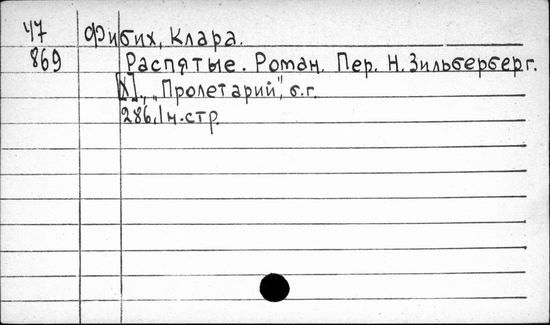 47 Фибих, Клара.
869 Распятые. Роман. Пер. Н. Зильберберг.
[X]., „Пролетарий", б.г.
286, 1 н. стр.